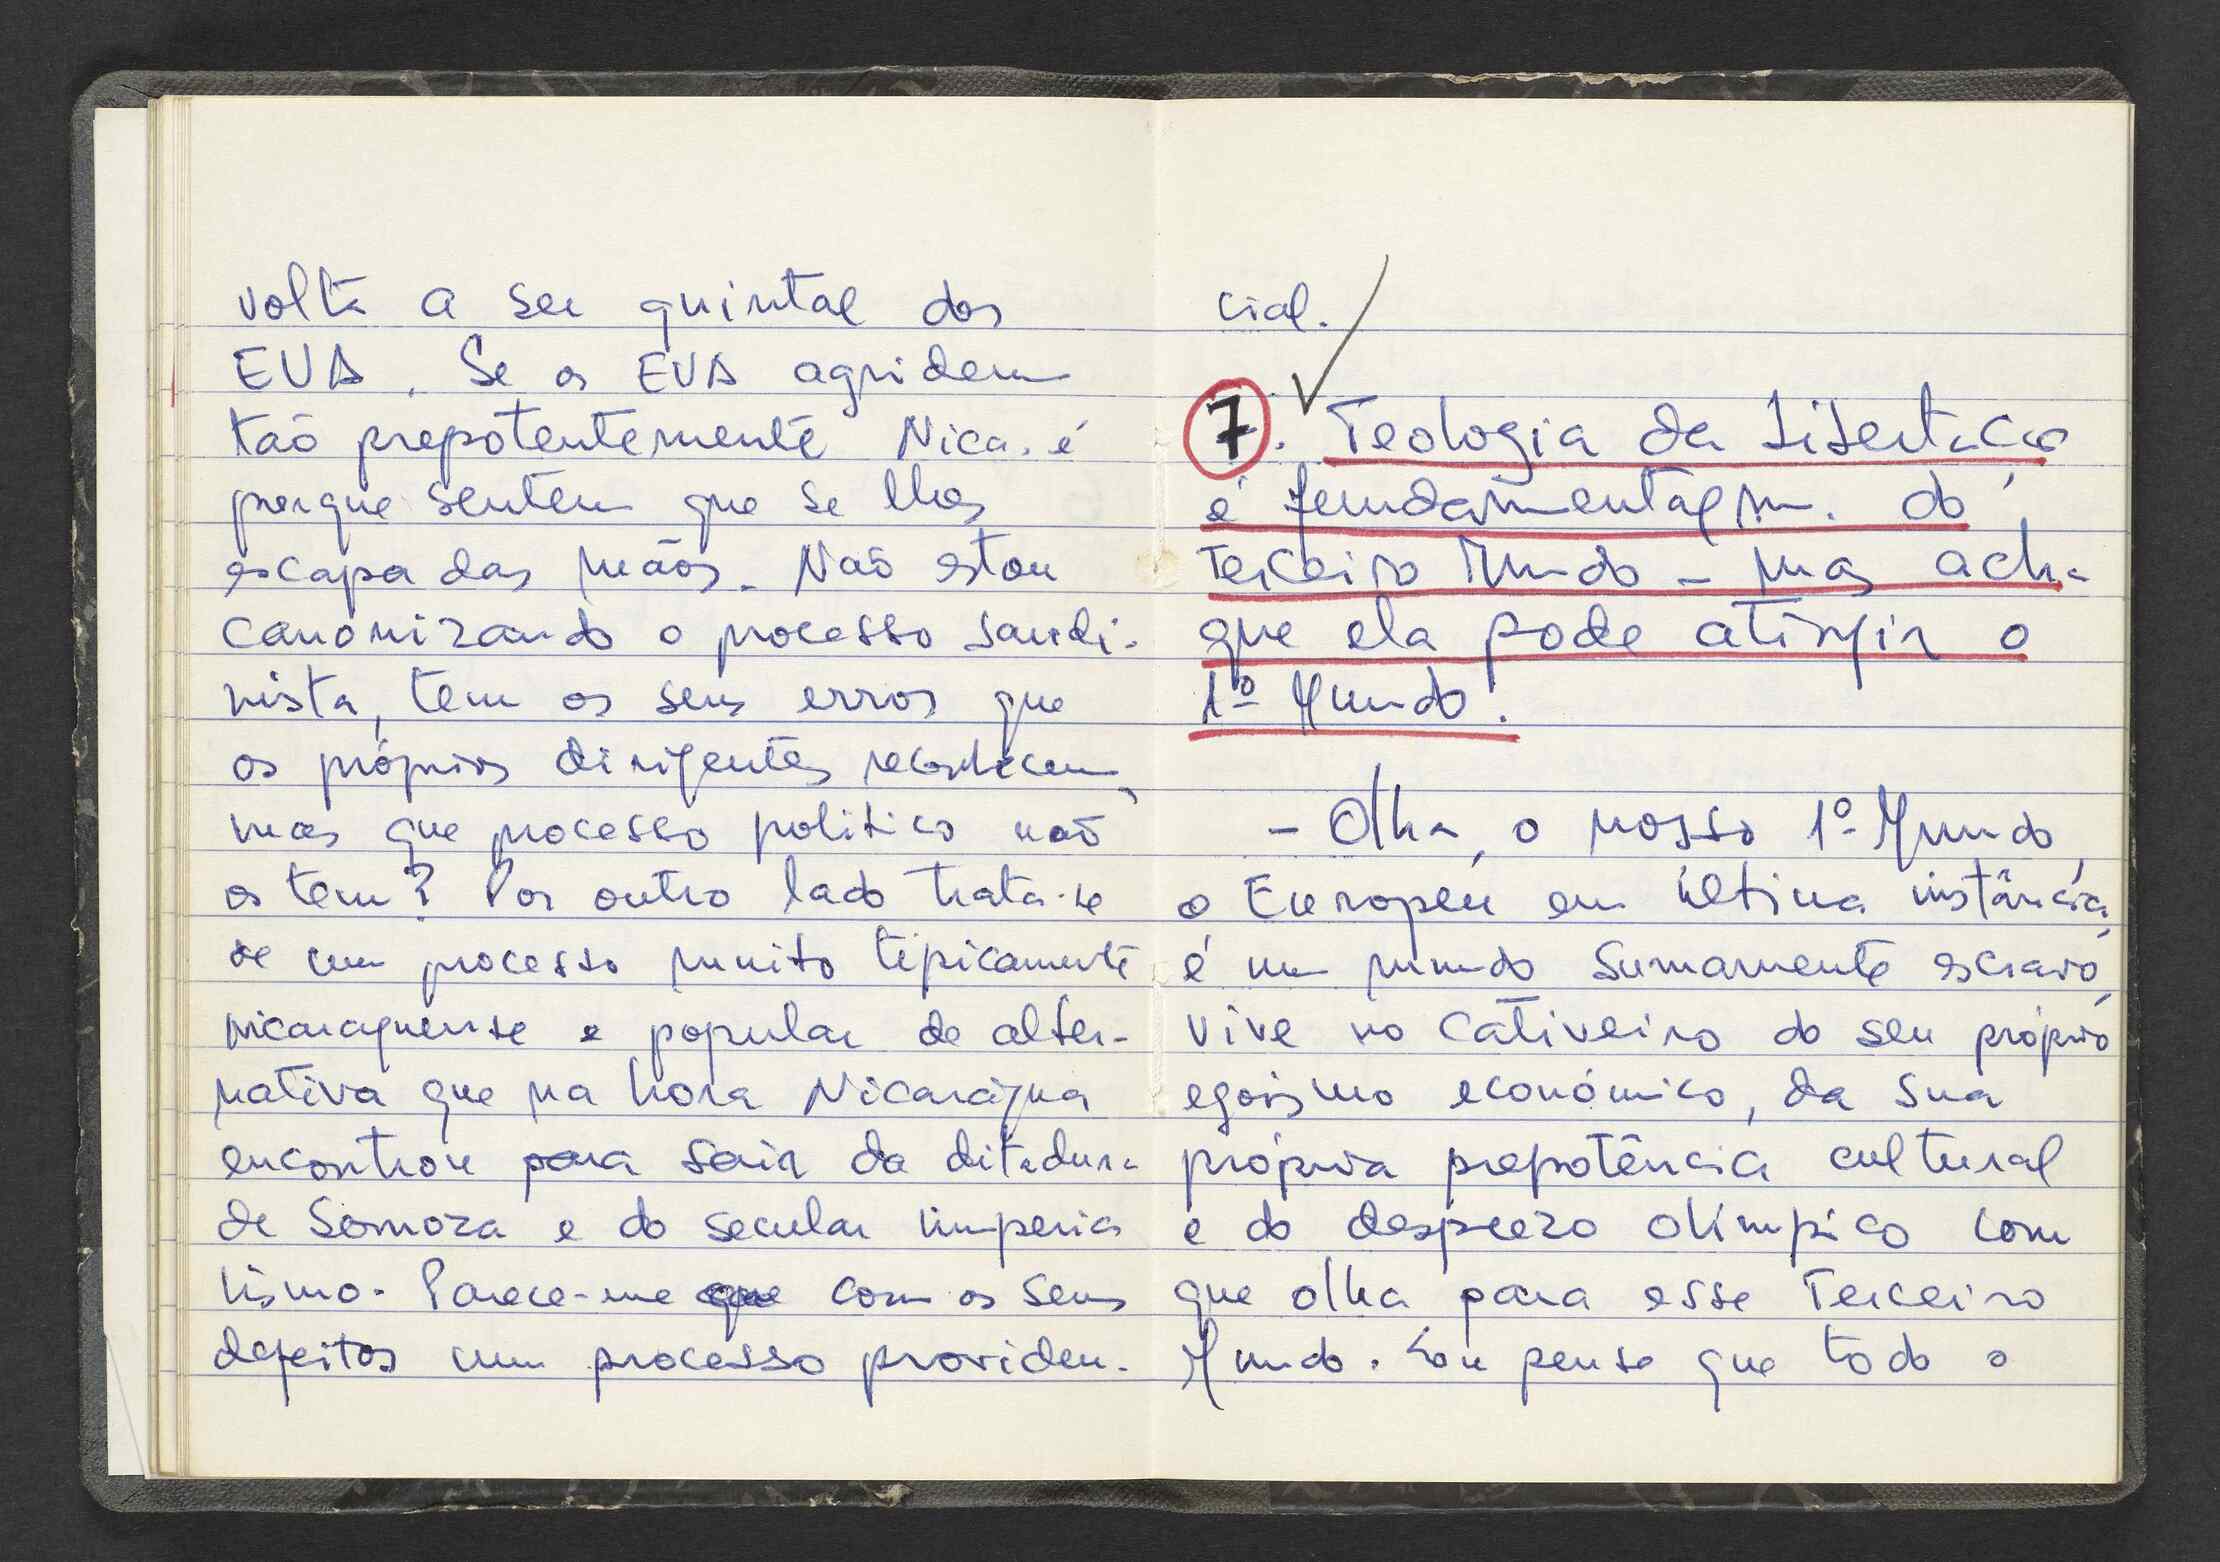 volta a ser quintal dos
EUA. Se os EUA agridem
tão prepotentemente Nica. é
porque sentem que se lhes
escapa das mãos. Não estou
canonizando o processo sandi-
nista, tem os seus erros que
os próprios dirigentes reconhecem,
mas que processo politico não
os tem? Por outro lado trata-se
de um processo muito tipicamente
nicaraguense e popular de alter-
nativa que na hora Nicarágua
encontrou para sair da ditadura
de Somoza e do secular imperia
lismo. Parece-me que com os seus
defeitos um processo providen-
cial.
7. Teologia da Libertacao
é fundamentalm. do
Terceiro Mundo - mas acha
que ela pode atingir o
1º Mundo.
- Olha, o nosso 1º Mundo,
o Europeu em última instância,
é um mundo sumamente escravo,
vive no cativeiro do seu próprio
egoismo económico, da sua
própria prepotência cultural
e do desprezo olímpico com
que olha para esse Terceiro
Mundo. Eu penso que todo o